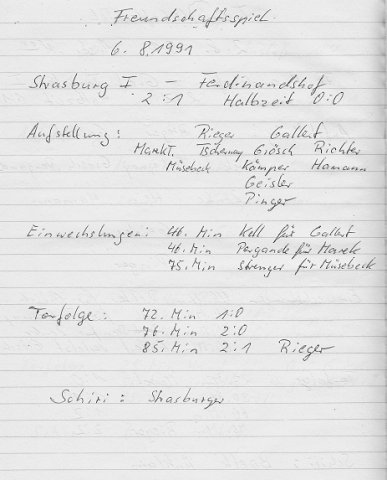 Freundschaftsspiel
6. 8. 1991
Strasburg I – Ferdinandshof
2 : 1 Halbzeit 0:0
Aufstellung: Rieger Gallert
Marek T. Tscherney Grösch Richter
Müsebeck Kämper Hamann
Geisler
Pinger
Einwechslungen: 46. Min Kell für Gallert
46. Min Pergande für Marek
75. Min Strenger für Müsebeck
Torfolge: 72. Min 1:0
76. Min 2:0
85. Min 2:1 Rieger
Schiri: Strasburger